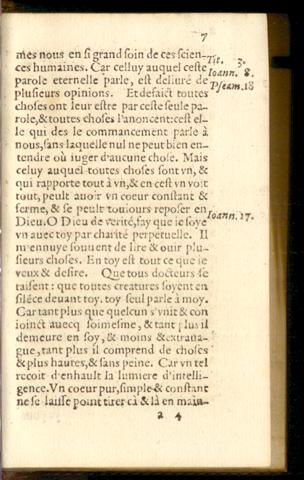 7
mes nous en si grand soin de ces scien-
ces humaines. Car celluy auquel ceste
parole eternelle parle, est deliuré de
plusieurs opinions. Et defaict toutes
choses ont leur estre par ceste seule pa-
role, & toutes choses l'anoncent: cest el-
le qui des le commancement parle à
nous, sans laquelle nul ne peut bien en-
tendre où iuger d'aucune chose. Mais
celuy auquel toutes choses sont vn, &
qui rapporte tout à vn, & en cest vn voit
tout, peult auoir vn coeur constant &
ferme, & se peult tousiours reposer en
Dieu. O Dieu de verité, fay que ie soye
vn auec toy par charité perpetuelle. Il
m'ennuye souuent de lire & ouir plu-
sieurs choses. En toy est tout ce que ie
veux & desire. Que tous docteurs se
taisent: que toutes creatures soyent en
silēce deuant toy. toy seul parle à moy.
Car tant plus que quelcun s'vnit & con
ioinct auecq soimesme, & tant plus il
demeure en soy, & moins & extraua-
gue, tant plus il comprend de choses
& plus hautes, & sans peine. Car vn tel
recoit d'enhault la lumiere d'intelli-
gence. Vn coeur pur, simple & constant
ne se laisse point tirer cà & là en main-
2 4
Tit. 3.
Ioann. 8.
Pseam. 18
Ioann. 17.